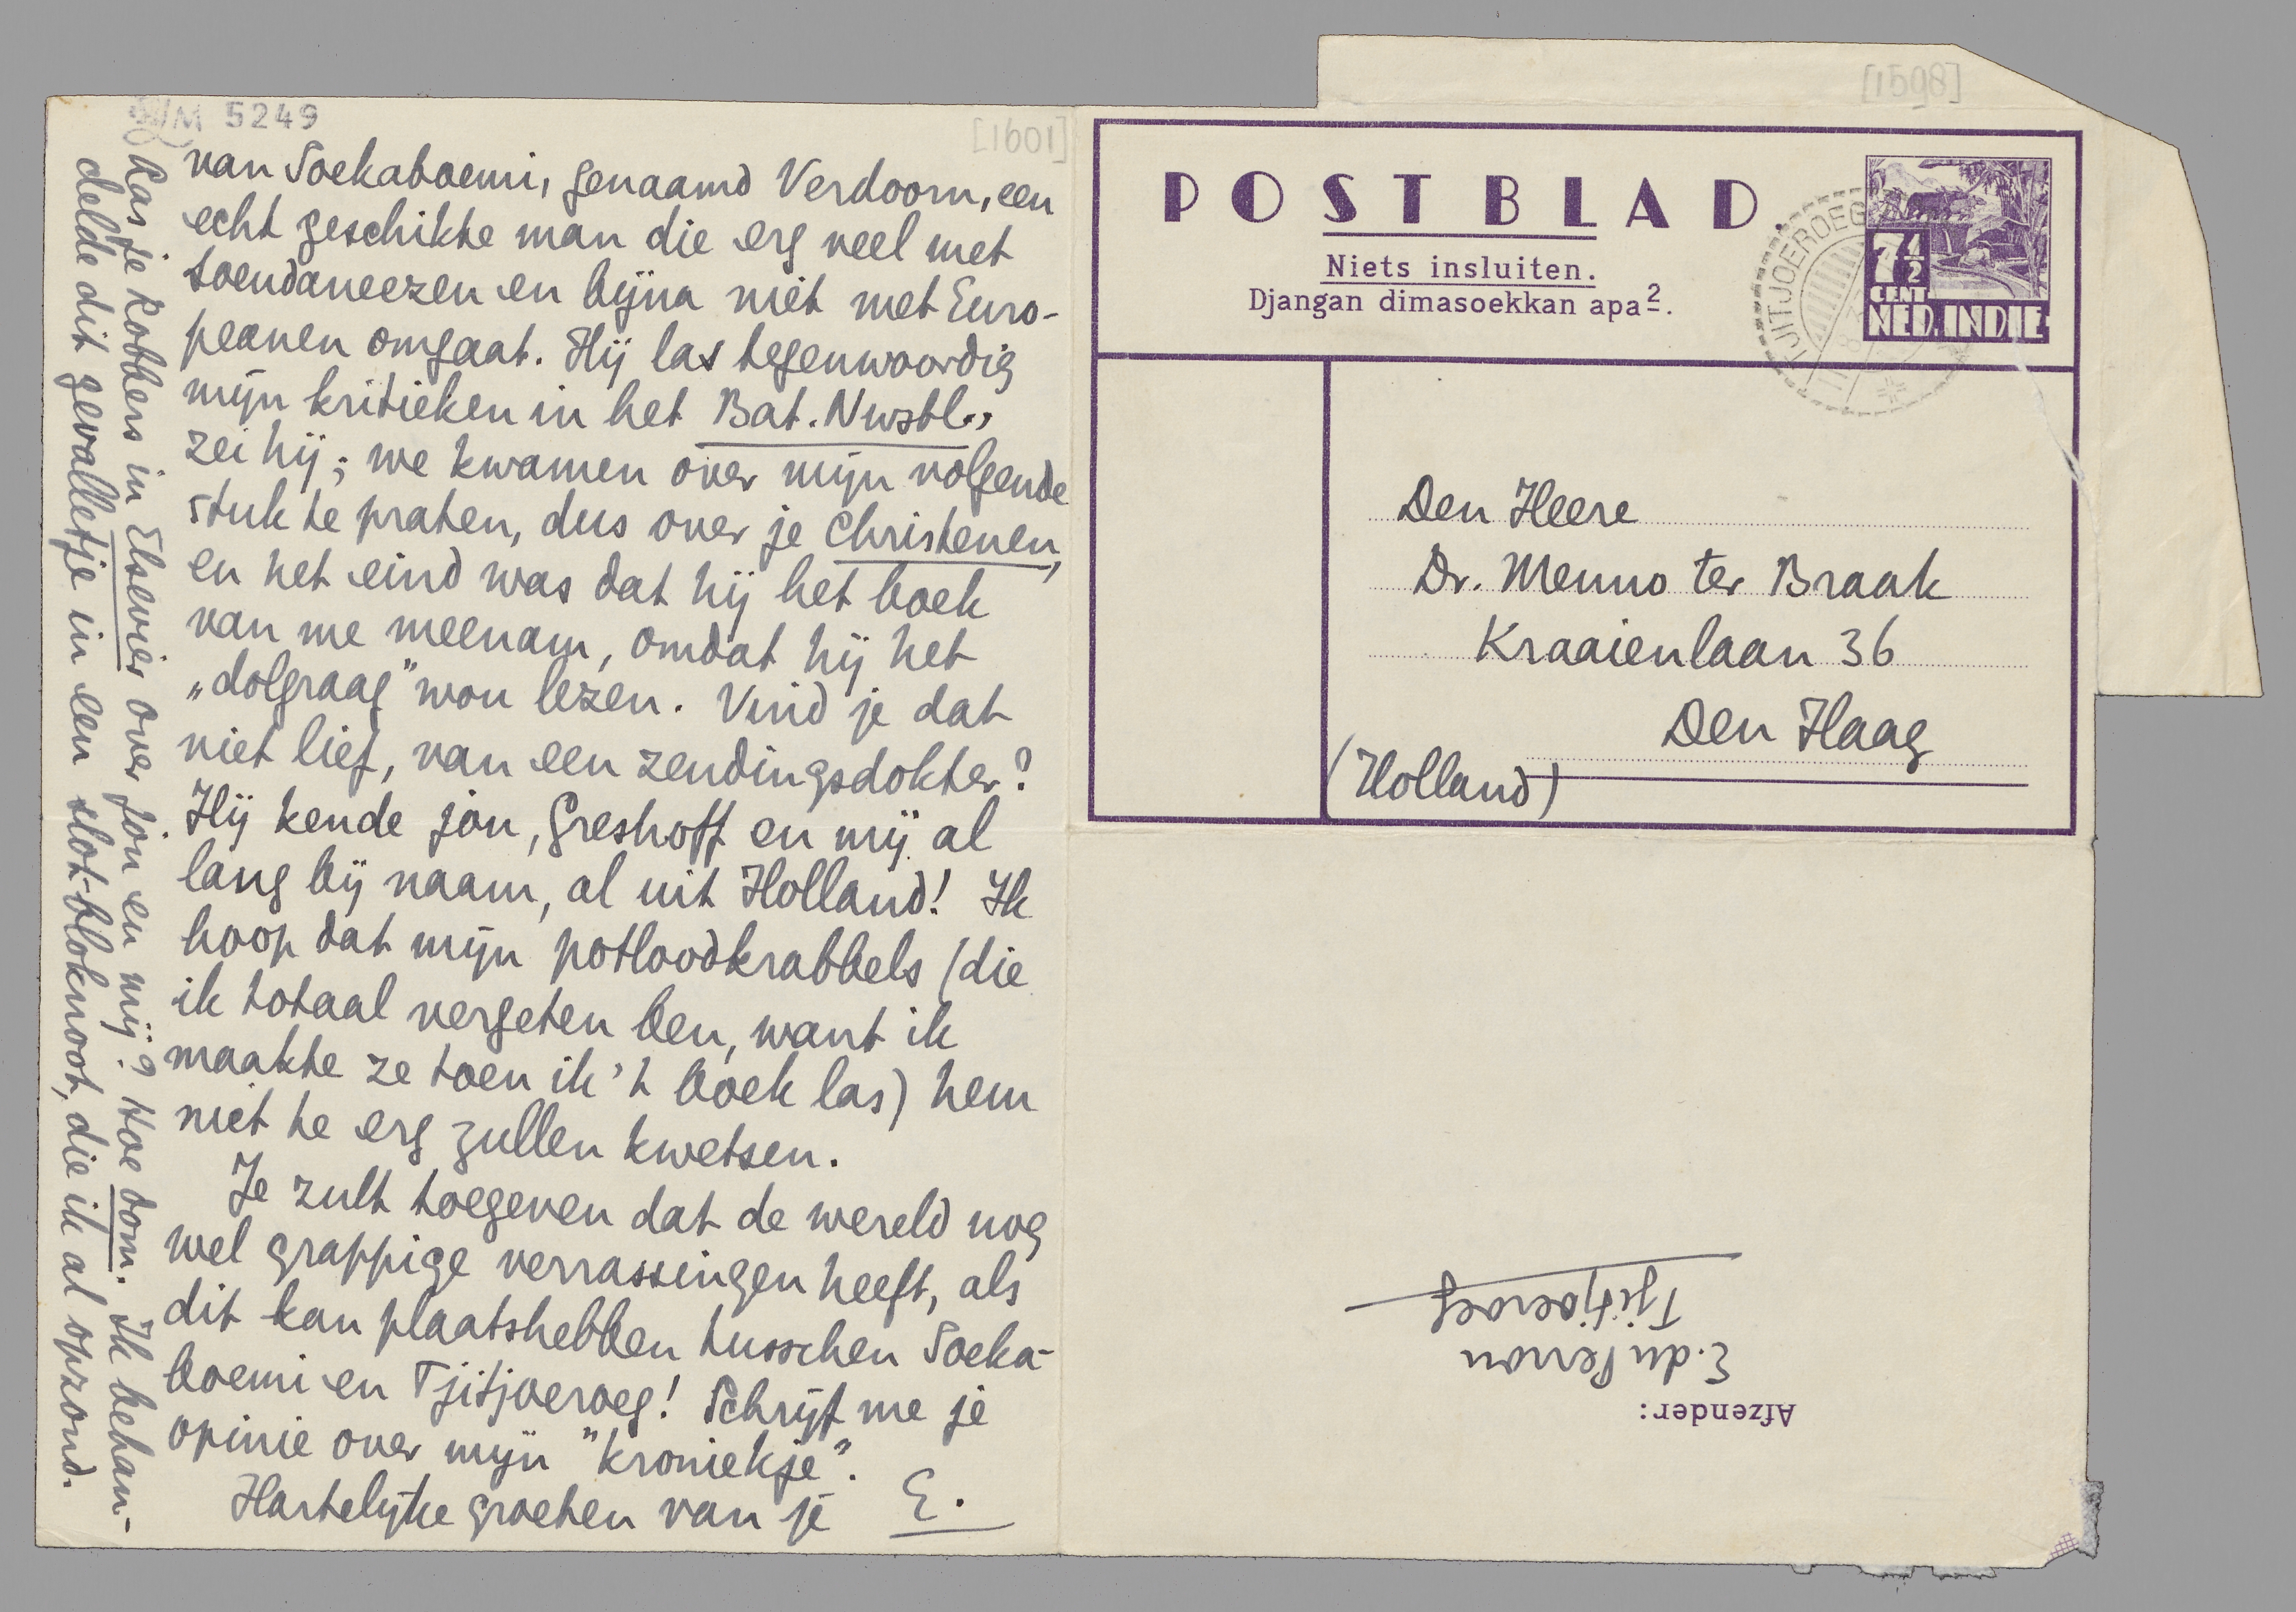 LM 5249
[1601]
van Soekaboemi, genaamd Verdoorn, een
echt geschikte man die erg veel met
soendaneezen en bijna niet met Euro-
peanen omgaat. Hij las tegenwoordig
mijn kritieken in het Bat. Nwsbl.,
zei hij; we kwamen over mijn volgende
stuk te praten, dus over je Christenen,
en het eind was dat hij het boek
van me meenam, omdat hij het
„dolgraag" wou lezen. Vind je dat
niet lief, van een zendingsdokter?
Hij kende jou, Greshoff en mij al
lang bij naam, al uit Holland! Ik
hoop dat mijn potloodkrabbels (die
ik totaal vergeten ben, want ik
maakte ze toen ik 't boek las) hem
niet te erg zullen kwetsen.
Je zult toegeven dat de wereld nog
wel grappige verrassingen heeft, als
dit kan plaatshebben tusschen Soeka-
boemi en Tjitjoeroeg! Schrijf me je
opinie over mijn "kroniekje".
Hartelijke groeten van je E.
Las je Robbers in Elsevier over jou en mij? Hoe dom. Ik behan-
delde dit gevalletje in een slot-bloknoot, die ik al opzond.
[1598]
POSTBLAD.
Niets insluiten.
Djangan dimasoekkan apa2.
TJITJOEROEG
7½
CENT
NED. INDIE
Den Heere
Dr. Menno ter Braak
Kraaienlaan 36
Den Haag
(Holland)
Afzender:
E. du Perron
Tjitjoeroeg